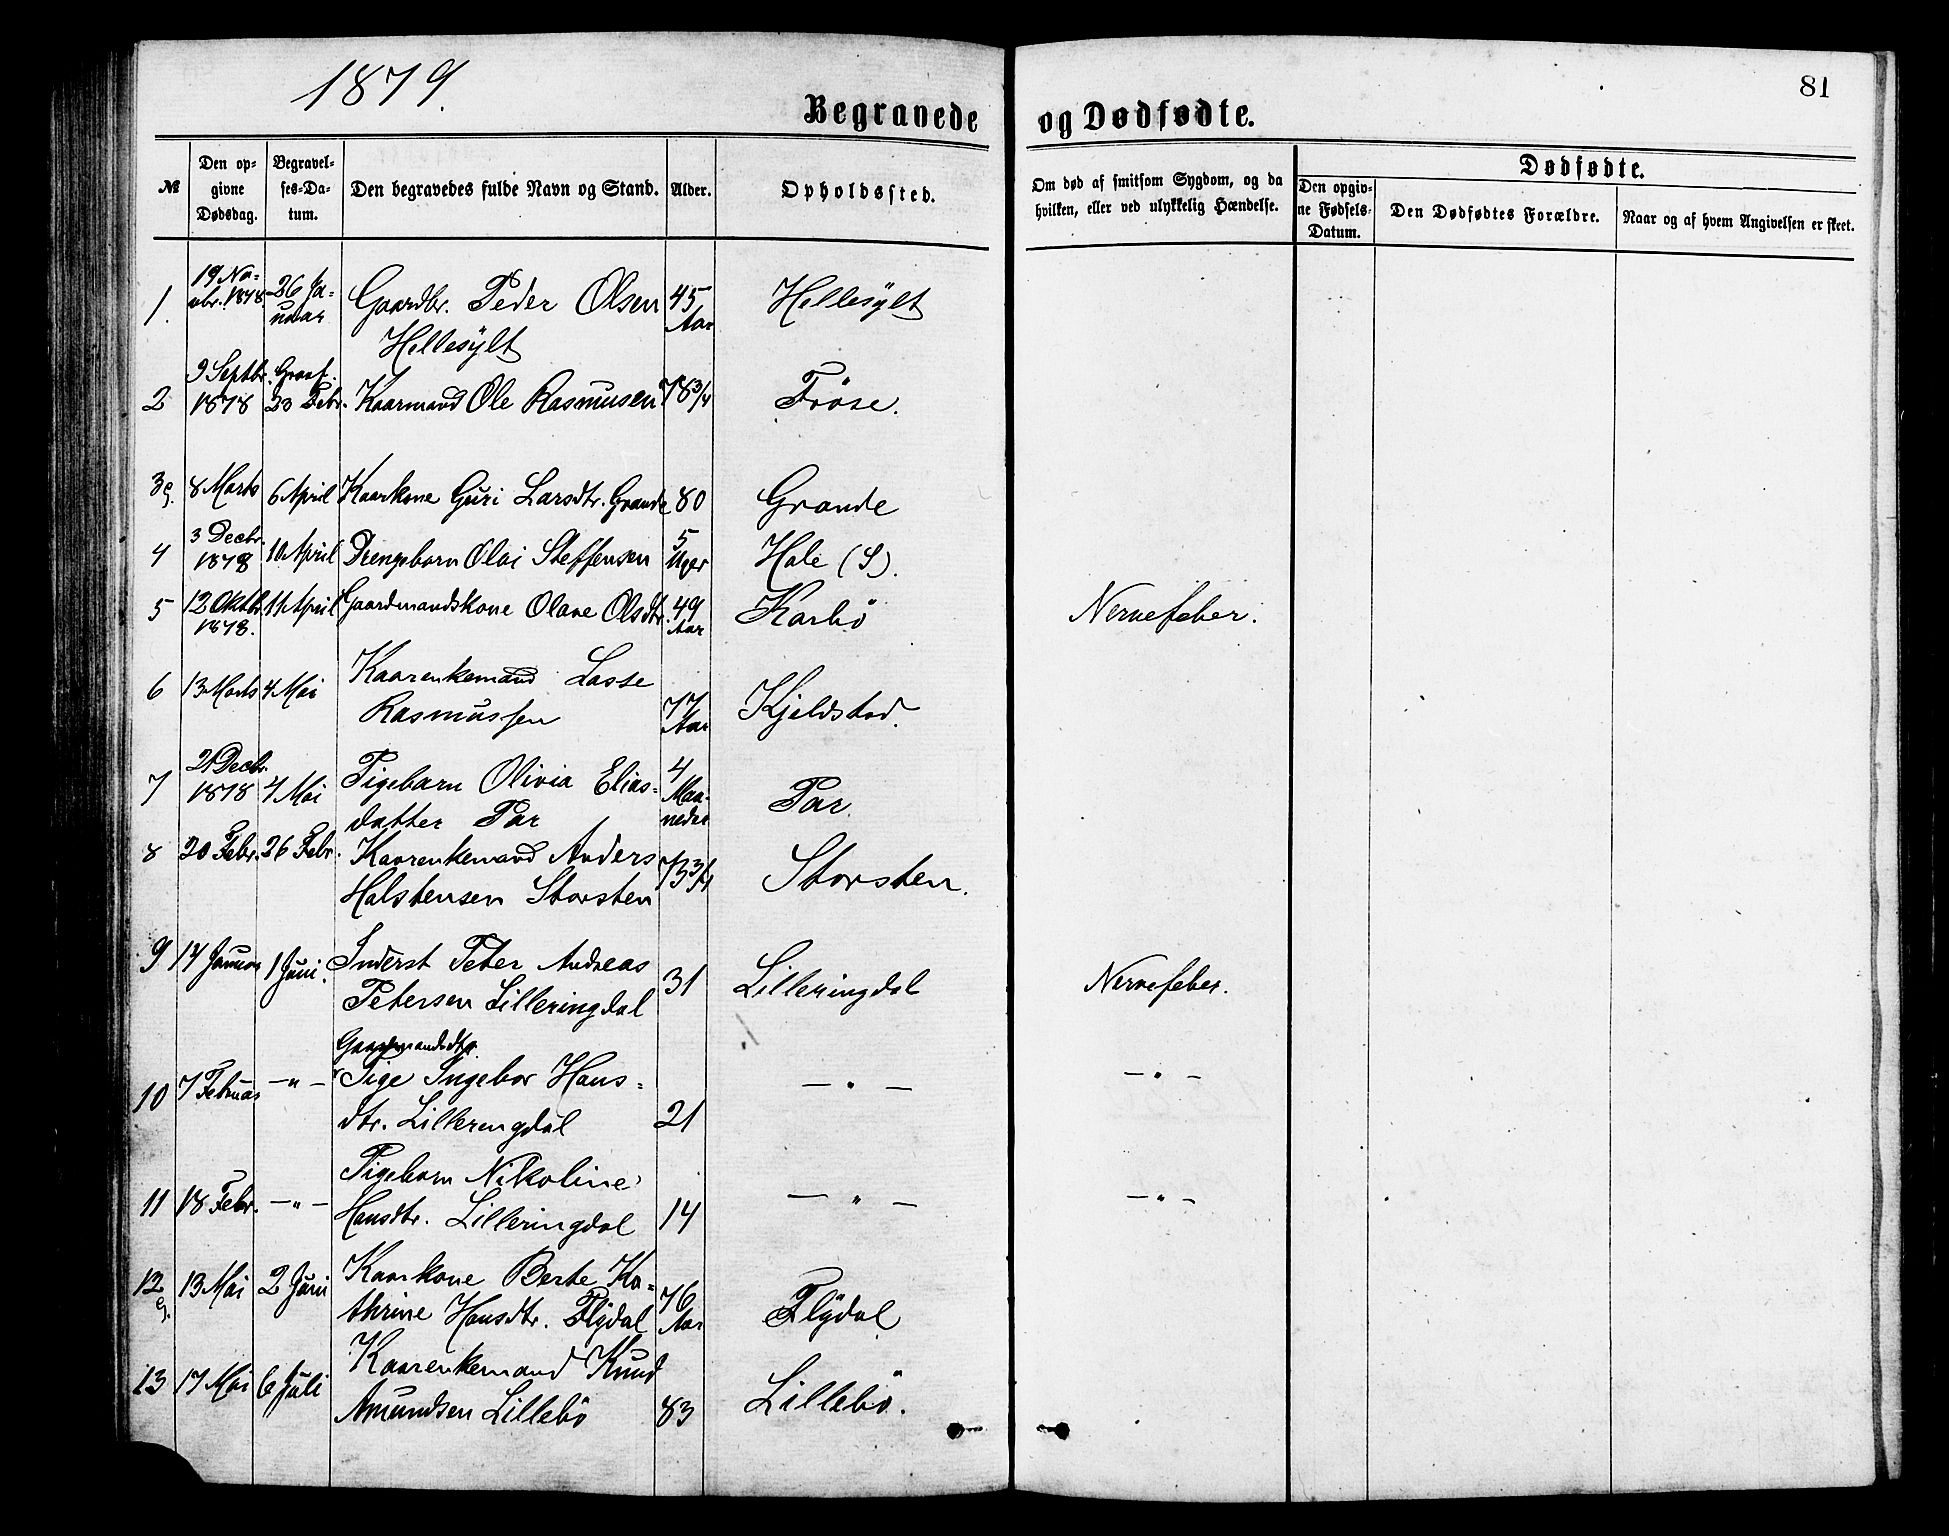 1879.
81
Begravede og Dødfødte.
№
Den opgivne Dødsdag.
Begravelses-Datum.
Den begravedes fulde Navn og Stand.
Alder.
Opholdssted.
Om død af smitsom Sygdom, og da hvilken, eller ved ulykkelig Hændelse.
Dødfødte.
Den opgivne Fødsels-Datum.
Den Dødfødtes Forældre.
Naar og af hvem Angivelsen er skeet.
1. 19 Novbr. 1878 26 Januar Gaardbr. Peder Olsen 45 Aar Hellesylt
Hellesylt
2 9 Septbr. 1878 Graaf. 23 Febr. Kaarmand Ole Rasmusen 78 3/4 Frøse.
3 g. 8 Marts 6 April Kaarkone Guri Larsdtr. Grande 80 Grande
4 3 Decbr. 1878 10 April Drengebarn Olai Steffensen 5 Uger Hole (S).
5 12 Oktbr. 1878. 11 April Gaardmandskone Olave Olsdtr. 49 Aar Karbø Nervefeber.
6 13 Marts 4 Mai Kaarenkemand Lasse
Rasmussen 77 Aar Kjeldstad.
7 21 Decbr. 1878 4 Mai Pigebarn Olivia Elias-
datter Par 4 Maaneder Par.
8 20 Febr. 26 Febr. Kaarenkemand Anders
Halstensen Storsten 73 3/4 Storsten.
9 14 Januar 1 Juni. Inderst Peter Andreas
Petersen Lilleringdal 31 Lilleringdal Nervefeber.
Gaardmandsdtr.
10 7 Februar — " — Pige Ingebor Hans-
dtr. Lilleringdal 21 — " — — " —
11 18 Febr. — " — Pigebarn Nikoline
Hansdtr. Lilleringdal 14 — " — — " —
12 g. 13 Mai 2 Juni Kaarkone Berte Ka-
thrine Hansdtr. Flydal 76 Aar Flydal
13 17 Mai 6 Juli Kaarenkemand Knud
Amundsen Lillebø 83 Lillebø.